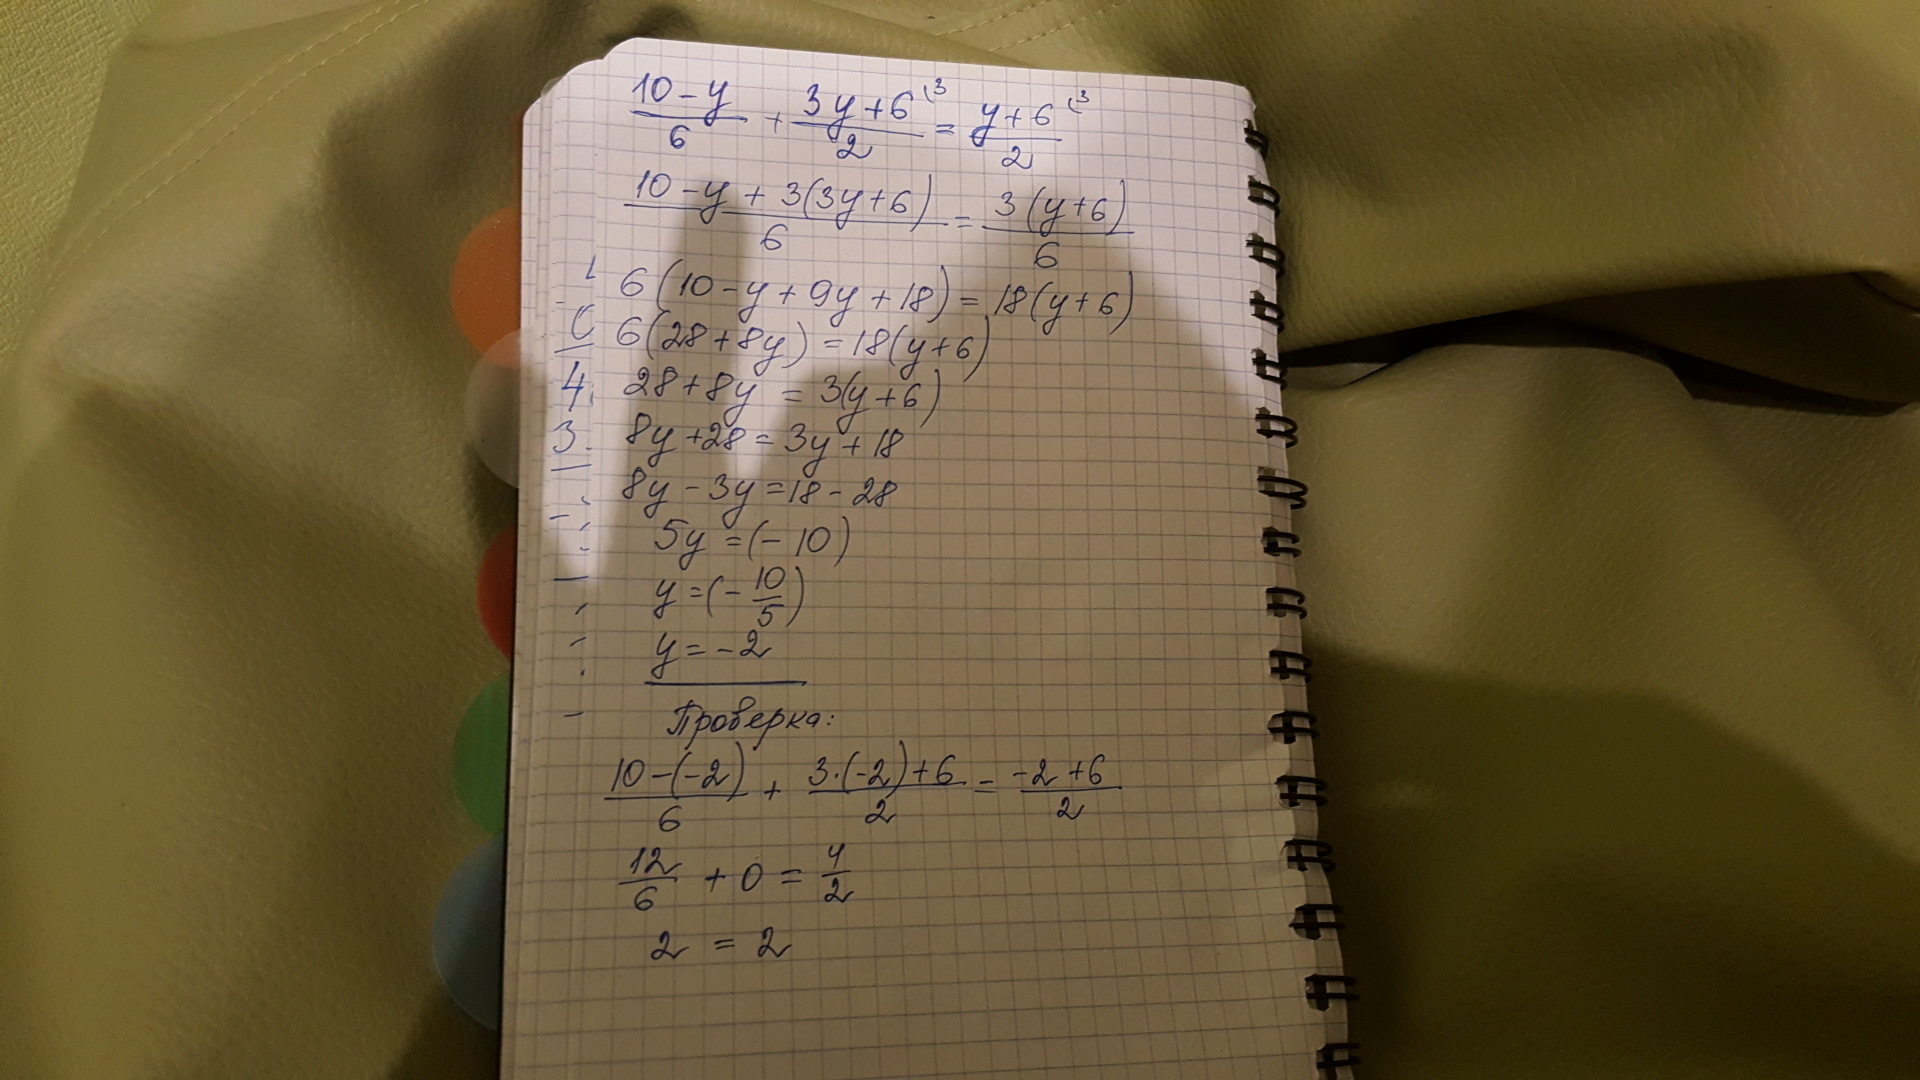 (10-y)/6 + (3y+6)/2 (3 = (y+6)/2 (3
(10-y + 3(3y+6))/6 = 3(y+6)/6
6(10-y+9y+18) = 18(y+6)
6(28+8y) = 18(y+6)
28+8y = 3(y+6)
8y+28 = 3y+18
8y-3y = 18-28
5y = (-10)
y = (-10/5)
y = -2
Проверка:
(10-(-2))/6 + (3·(-2)+6)/2 = (-2+6)/2
12/6 + 0 = 4/2
2 = 2